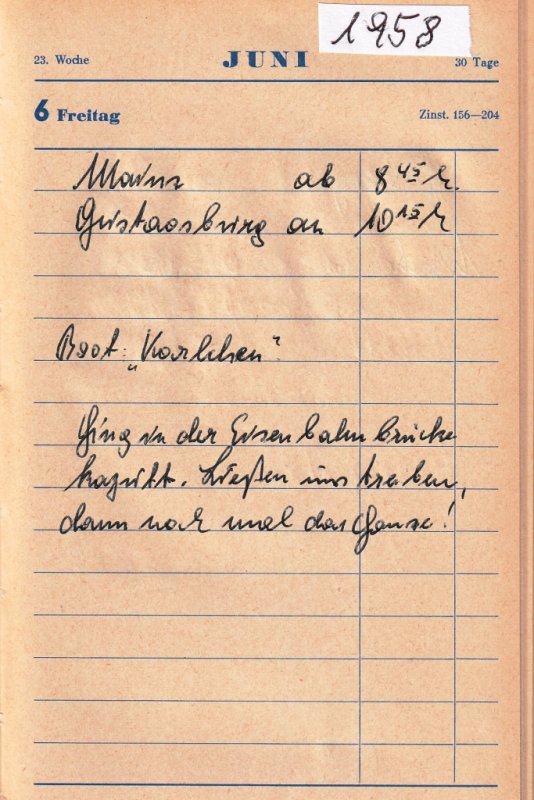 1958
23. Woche JUNI 30 Tage
6 Freitag Zinst. 156—204
Mainz ab 8 45 h.
Gustavsburg an 10 15 h
Boot: „Karlchen".
Ging an der Eisenbahnbrücke
kaputt. Ließen uns treiben,
dann noch mal das Ganze!